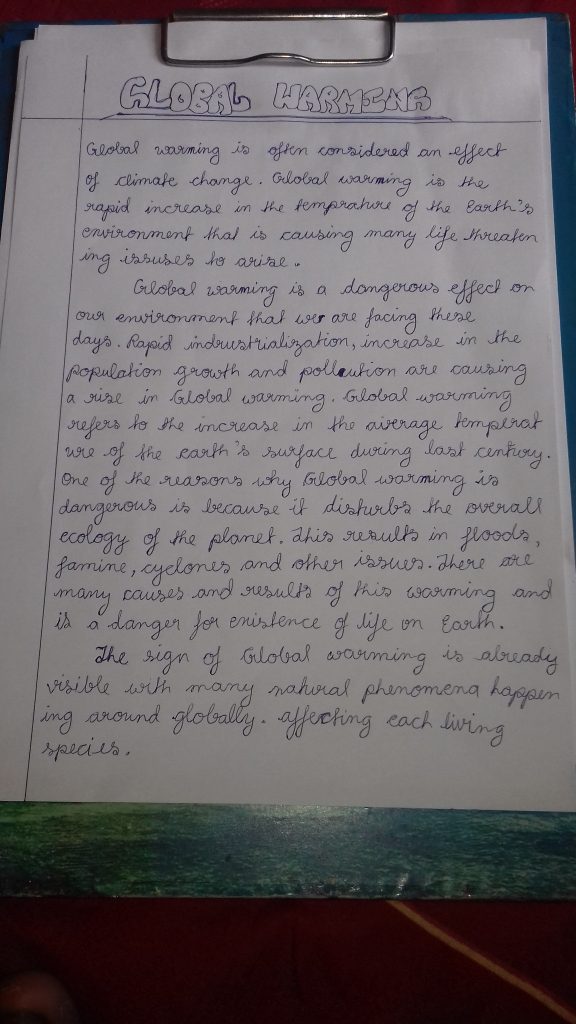 GLOBAL WARMING
Global warming is often considered an effect
of climate change. Global warming is the
rapid increase in the temprature of the Earth's
environment that is causing many life threaten
ing issuses to arise.
Global warming is a dangerous effect on
our environment that we are facing these
days. Rapid indrustrialization, increase in the
population growth and pollution are causing
a rise in Global warming. Global warming
refers to the increase in the average temperat
ure of the earth's surface during last century.
One of the reasons why Global warming is
dangerous is because it disturbs the overall
ecology of the planet. This results in floods,
famine, cyclones and other issues. There are
many causes and results of this warming and
is a danger for existence of life on Earth.
The sign of Global warming is already
visible with many natural phenomena happen
ing around globally. affecting each living
species.